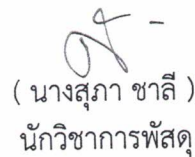 ( นางสุภา ชาลี )
นักวิชาการพัสดุ